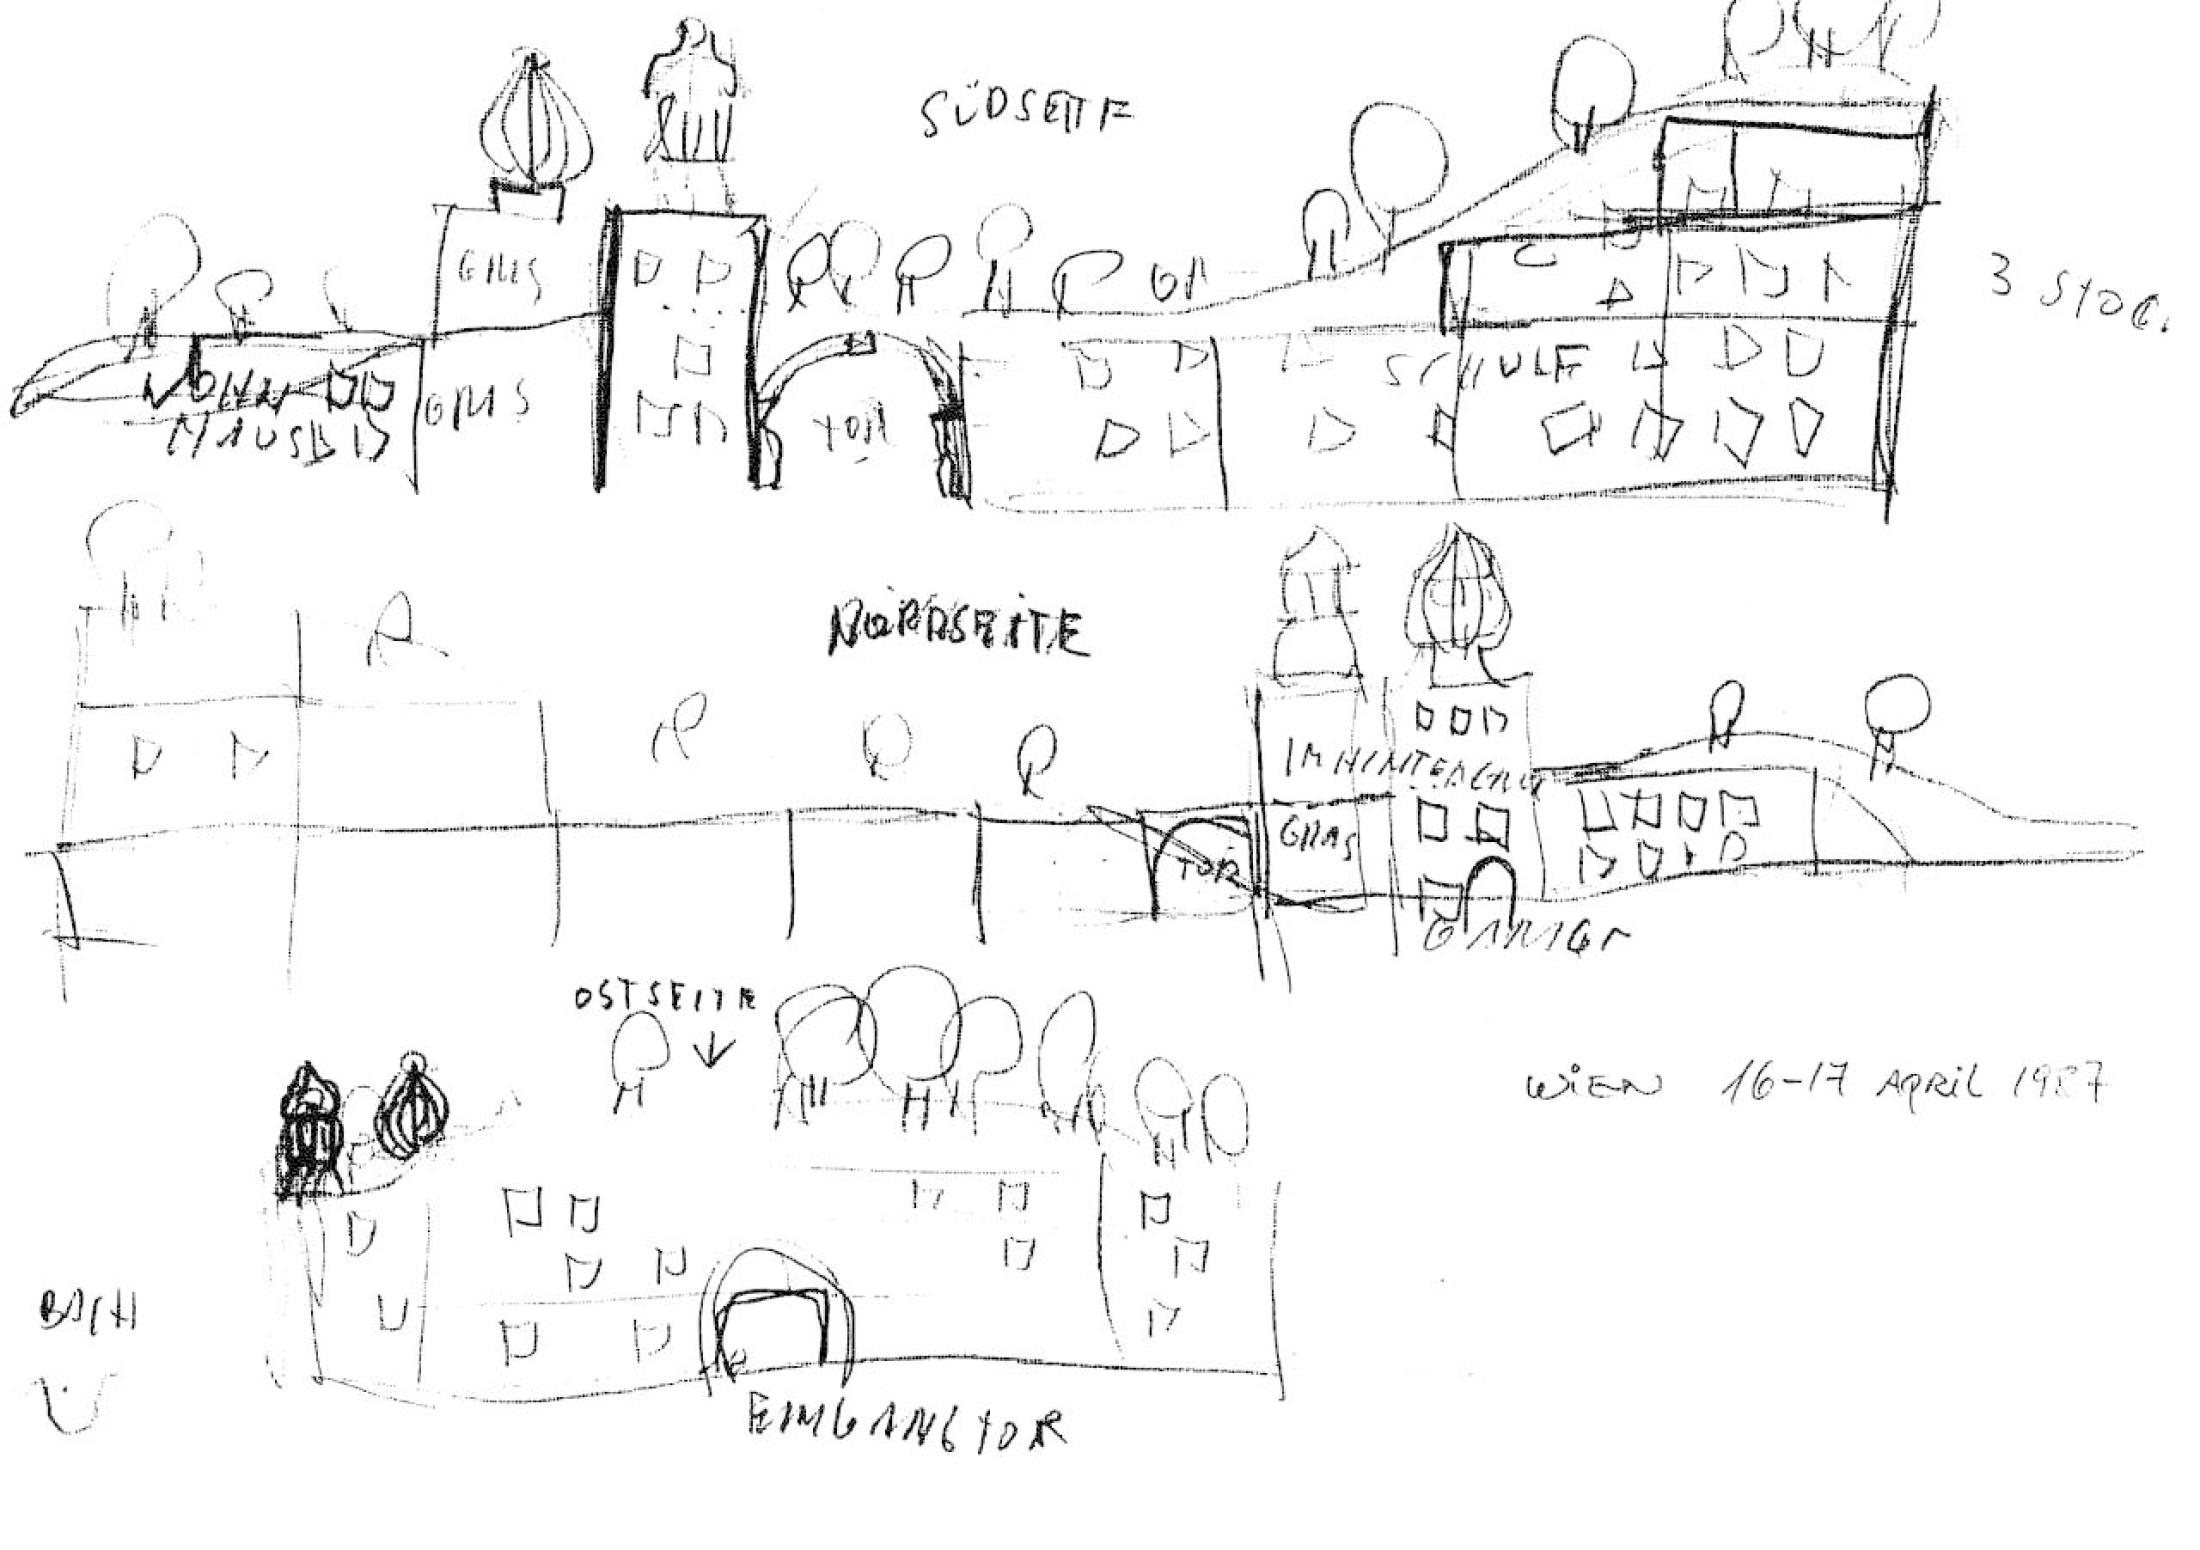 SÜDSEITE
GRAS
3 STOC.
WOHN
HAUSER
GRAS
TOR
SCHULE
NORDSEITE
IM HINTERGRU
GRAS
TOR
GARAGE
OSTSEITE
WIEN 16-17 APRIL 1987
BACH
EINGANGTOR